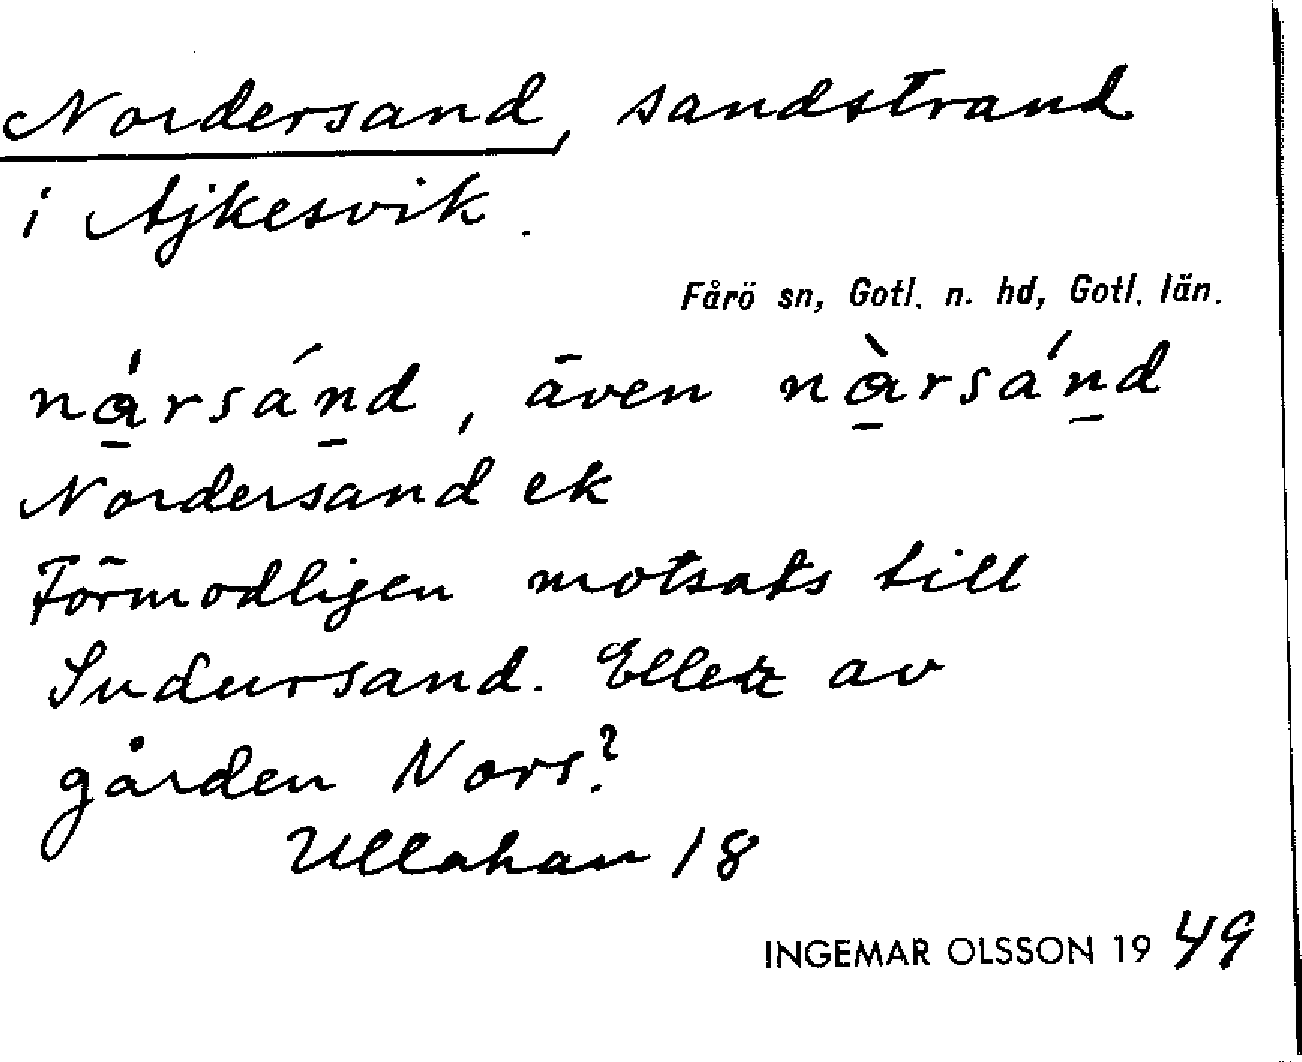 Nordersand, sandstrand
i Ajkesvik.
Fårö sn, Gotl. n. hd, Gotl. län.
nȧrsánd, även nàrsánd
Nordersand ek
Förmodligen motsats till
Sudursand. Eller av
gården Nors?
Ullahau 18
INGEMAR OLSSON 1949